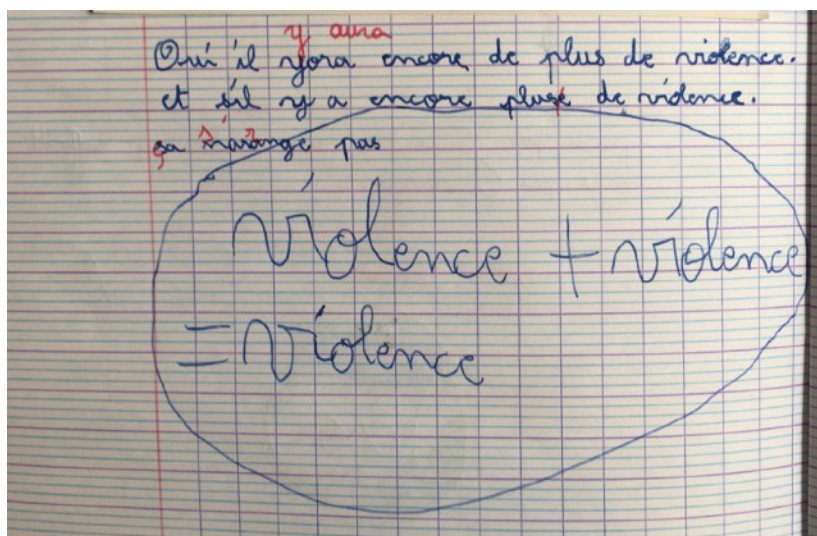 y aura
Oui il yora encore de plus de violence.
et s'il y a encore pluse de violence.
sa n'arange pas
violence + violence
= violence